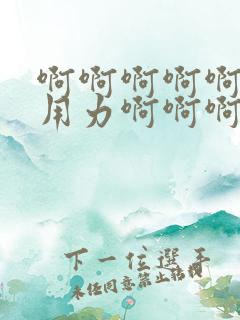 啊啊啊啊啊
用力啊啊啊
下一位選手
未经同意禁止转载